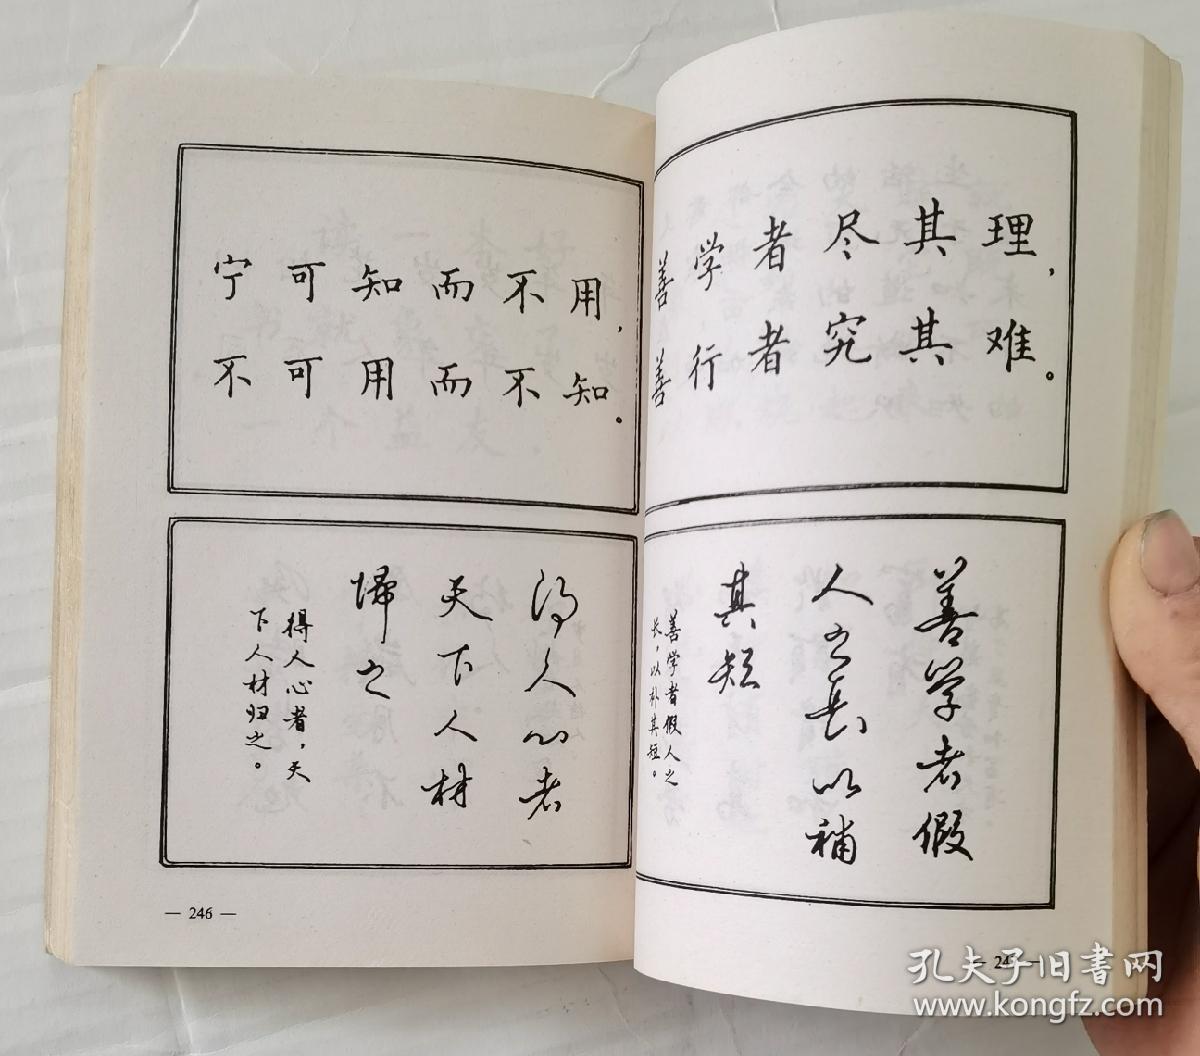 宁可知而不用，
不可用而不知。
得人心者
天下人材
歸之
得人心者，天
下人材归之。
— 246 —
善学者尽其理，
善行者究其难。
善学者假
人之長以補
其短
善学者假人之
长，以补其短。
孔夫子旧書网
www.kongfz.com